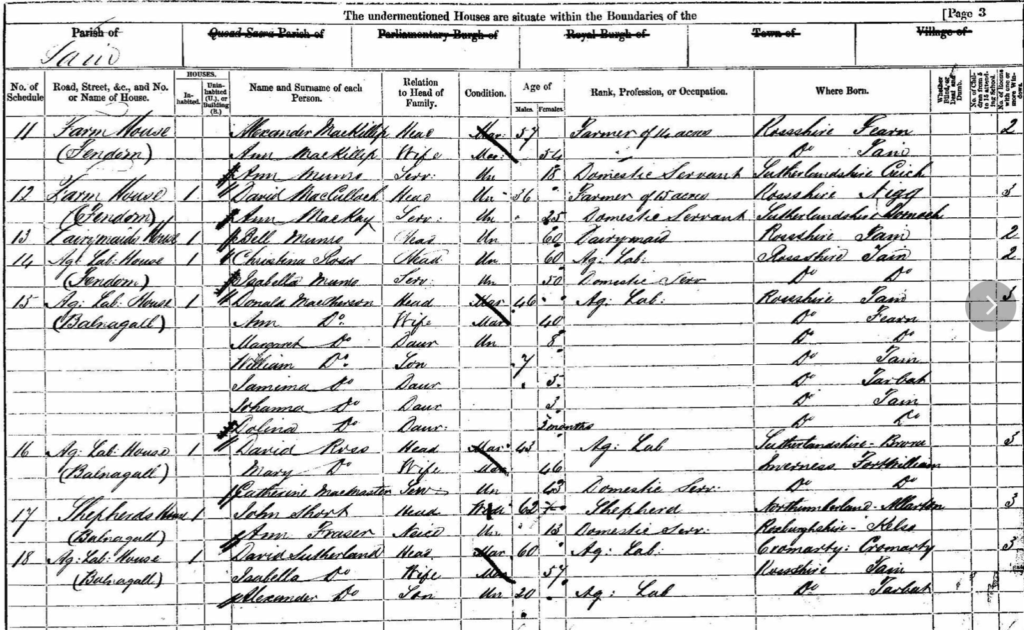 The undermentioned Houses are situate within the Boundaries of the [Page 3
Parish of Quoad Sacra Parish of Parliamentary Burgh of Royal Burgh of Town of Village of
Tain
No. of Schedule Road, Street, &c., and No. or Name of House. HOUSES. Inhabited. Uninhabited (U.), or Building (B.) Name and Surname of each Person. Relation to Head of Family. Condition. Age of Males. Females. Rank, Profession, or Occupation. Where Born.
11 Farm House Alexander MacKillip Head Mar: 57 Farmer of 14 acres Rossshire Fearn 2
(Fendom) Ann MacKillip Wife Mar: 54 Do Tain
Ann Munro Serv: Un 18 Domestic Servant Sutherlandshire Creich
12 Farm House 1 David MacCulloch Head Un 36 Farmer of 15 acres Rossshire Nigg 3
(Fendom) Ann MacKay Serv: Un 25 Domestic Servant Sutherlandshire Dornoch
13 Dairymaids House 1 Bell Munro Head Un 60 Dairymaid Rossshire Tain 2
14 Ag: Lab: House 1 Christina Head Un 60 Ag: Lab: Rossshire Tain 2
(Fendom) Isabella Munro Serv: Un 50 Domestic Serv Do Do
15 Ag: Lab: House 1 Donald MacPherson Head Mar 46 Ag: Lab: Rossshire Tain 3
(Balnagall) Ann Do Wife Mar 40 Do Fearn
Margaret Do Daur Un 8 Do Do
William Do Son 7 Do Tain
Jamima Do Daur 5 Do Tarbat
Johanna Do Daur 3 Do Tain
Dolina Do Daur: 3 months Do Do
16 Ag: Lab: House 1 David Ross Head Mar 43 Ag: Lab Sutherlandshire - Brora 3
(Balnagall) Mary Do Wife Mar 46 Inverness Fortwilliam
Catherine MacMaster Serv Un 43 Domestic Serv: Do Do
17 Shepherds House 1 John Short Head 62 Shepherd Northumberland - 3
(Balnagall) Ann Fraser Neice Un 13 Domestic Serv: Roxburghshire - Kelso
18 Ag: Lab: House 1 David Sutherland Head Mar 60 Ag: Lab: Cromarty: Cromarty 3
(Balnagall) Isabella Do Wife Mar 57 Rossshire Tain
Alexander Do Son Un 20 Ag: Lab Do Tarbat